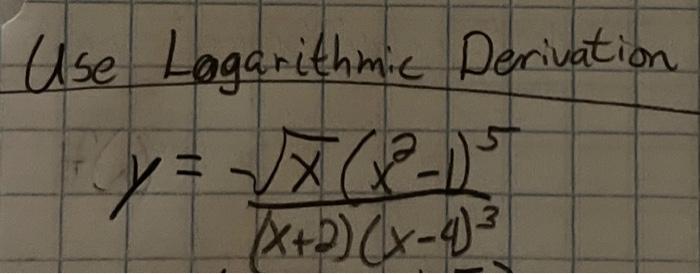 Use Logarithmic Derivation
y = √x (x²-1)⁵
(x+2)(x-4)³